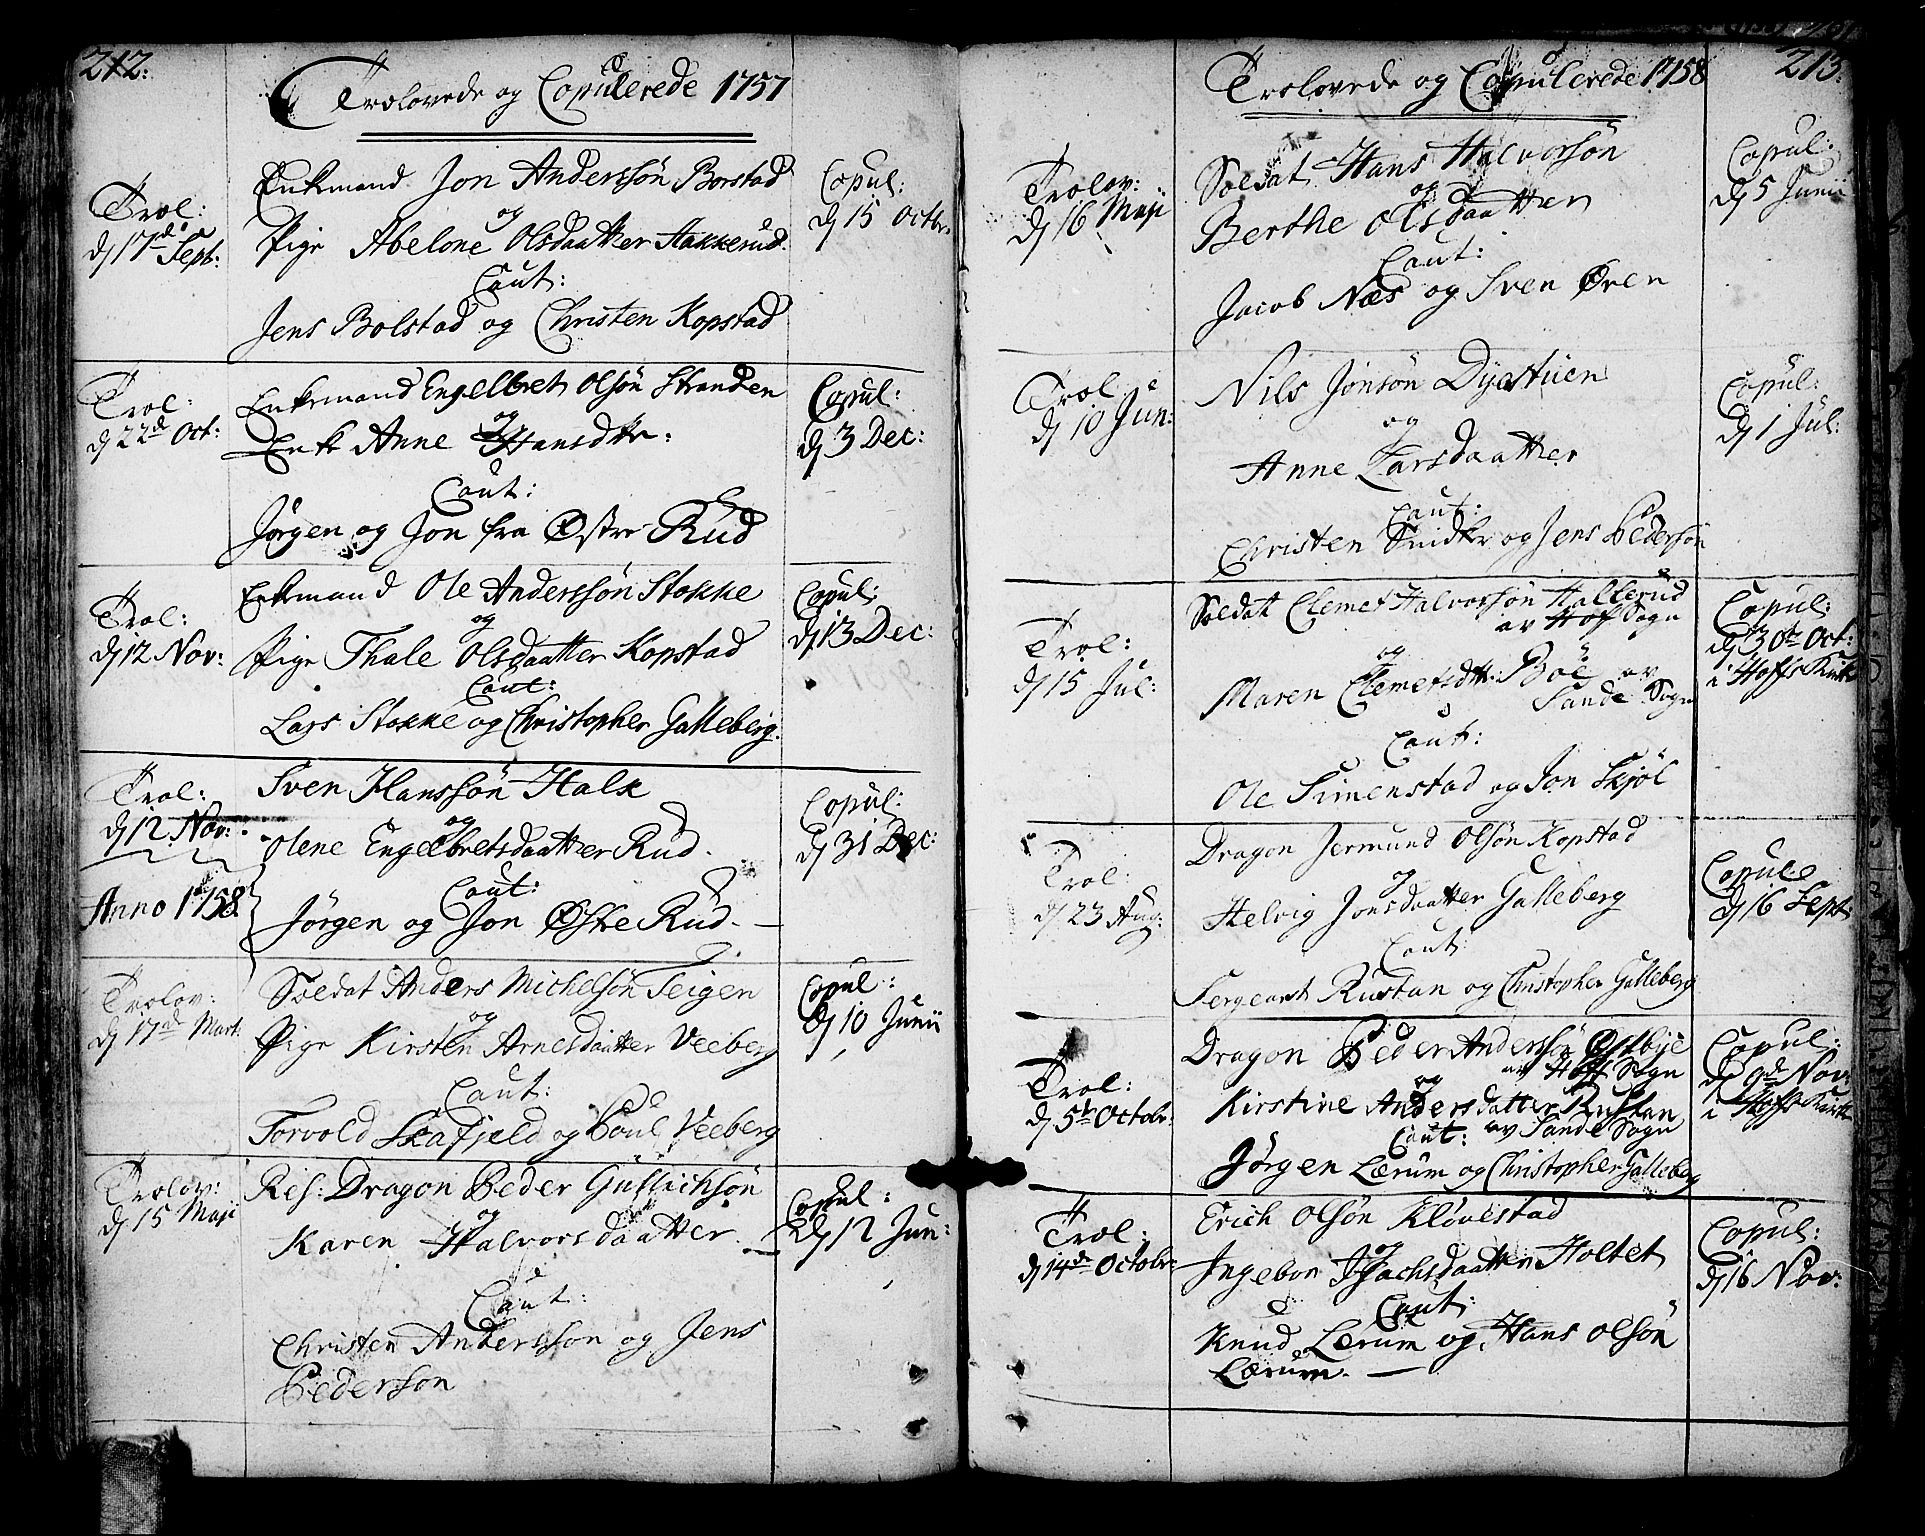 212:
Trolovede og Copulerede 1757
Trol:
dj 17de Sept:
Enkemand Jon Anderssön Borstad
og
Pige Abelone Olsdaatter Hakkerud.
Caut:
Jens Bolstad og Christen Kopstad
Copul:
dj 15 Octbr.
Trol:
dj 22de Oct:
Enkemand Engelbret Olsön Stranden
og
Enke Anne Hansdtr:
Caut:
Jörgen og Jon fra Østre Rud
Copul:
dj 3 Dec:
Trol:
dj 12 Nov:
Enkemand Ole Anderssön Stokke
og
Pige Thale Olsdaatter Kopstad
Caut:
Lars Stokke og Christopher Galleberg.
Copul:
dj 13 Dec:
Trol:
dj 12 Nov:
Sven Hanssön Halk
og
Olene Engelbretsdaatter Rud.
Caut:
Jörgen og Jon Østre Rud.
Copul:
dj 31 Dec:
Anno 1758
Trolov:
dj 17de Mart:
Soldat Anders Michelsön Teigen
og
Pige Kirsten Arnesdaatter Veeberg
Caut:
Torvold Skafjeld og Poul Veeberg
Copul:
dj 10 Junii
Trolov:
dj 15 Maji
Res: Dragon Peder Gullichsön
og
Karen Halvorsdaatter.
Caut:
Christen Anderssön og Jens
Pedersön
Copul:
dj 12 Jun:
213:
Trolovede og Copulerede 1758
Trolov:
dj 16 Maji
Soldat Hans Halvorsön
og
Berthe Olsdaatter
Caut:
Jacob Næs og Sven Øren
Copul:
dj 5 Junii
Trol
dj 10 Jun:
Nils Jonsön Dyestuen
og
Anne Larsdaatter
Caut:
Christen Smidk og Jens Pedersön
Copul:
dj 1 Jul:
Trol:
dj 15 Jul:
Soldat Clemet Halvorsön Hallerud
av Hof Sogn
og
Maren Clemetsdtr: Böe av
Sande Sogn
Caut:
Ole Simenstad og Jon Skjöl
Copul:
dj 30te Oct:
i Hoffs Kirke
Trol:
dj 23 Aug:
Dragon Jermund Olsön Kopstad
og
Helvig Jonsdaatter Galleberg
Caut:
Sergeant Rustan og Christopher Galleberg
Copule
dj 16 Sept:
Trol:
dj 5te Octobr:
Dragon Peder Andersön Østbye
av Hoff Sogn
og
Kirstine Andersdatter Rustan
av Sande Sogn
Caut:
Jörgen Lærum og Christopher Galleberg
Copul:
dj 9de Nov:
i Hoffs Kirke
Trol:
dj 14de Octobr:
Erich Olsön Klövestad
og
Ingebor Isachsdaatter Holtet
Caut:
Knud Lærum og Hans Olsön
Lærum.
Copul:
dj 16 Nov: